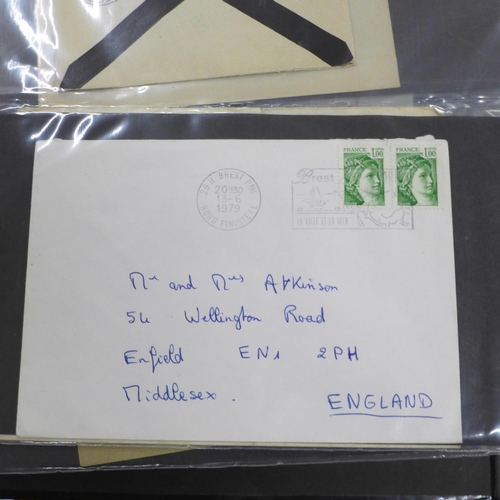 29 N BREST
20H30
13-6
1979
NORD FINISTERE
Brest
LA VILLE ET LA MER
FRANCE FRANCE
1,00 1,00
Mr and Mrs Atkinson
54 Wellington Road
Enfield EN1 2PH
Middlesex.
ENGLAND